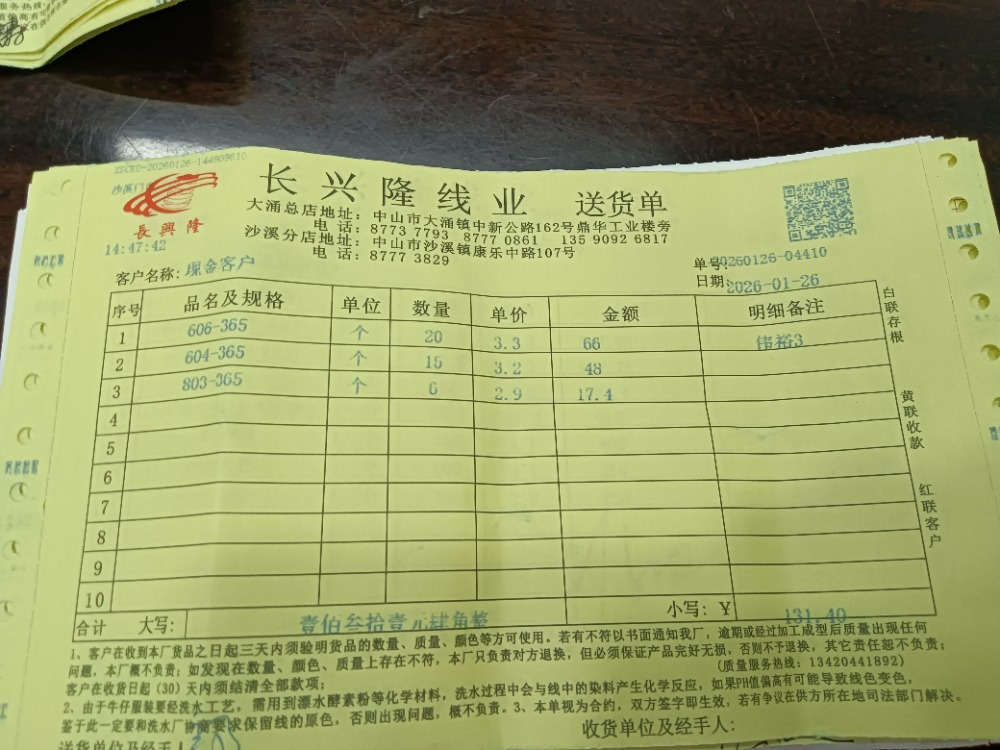 服务热线:
XSCKD-20260126-144809610
沙溪门
長興隆
14:47:42
长兴隆线业 送货单
大涌总店地址: 中山市大涌镇中新公路162号鼎华工业楼旁
电话: 8773 7793 8777 0861 135 9092 6817
沙溪分店地址: 中山市沙溪镇康乐中路107号
电话: 8777 3829
客户名称: 现金客户
单号: 20260126-04410
日期: 2026-01-26
序号 品名及规格 单位 数量 单价 金额 明细备注
1 606-365 个 20 3.3 66 伟裕3
2 604-365 个 15 3.2 48
3 803-365 个 6 2.9 17.4
4
5
6
7
8
9
10
合计 大写: 壹佰叁拾壹元肆角整 小写: ¥ 131.40
白联存根
黄联收款
红联客户
1、客户在收到本厂货品之日起三天内须验明货品的数量、质量、颜色等方可使用。若有不符以书面通知我厂，逾期或经过加工成型后质量出现任何
问题，本厂概不负责；如发现在数量、颜色、质量上存在不符，本厂只负责对方退换，但必须保证产品完好无损，否则不予退换，其它责任恕不负责；
客户在收货日起（30）天内须结清全部款项； (质量服务热线: 13420441892)
2、由于牛仔服装要经洗水工艺，需用到漂水酵素粉等化学材料，洗水过程中会与线中的染料产生化学反应，如果PH值偏高有可能导致线色变色，
鉴于此一定要和洗水厂协商要求保留线的原色，否则出现问题，概不负责。3、本单视为合约，双方签字即生效，若有争议在供方所在地司法部门解决。
送货单位及经手人 收货单位及经手人: